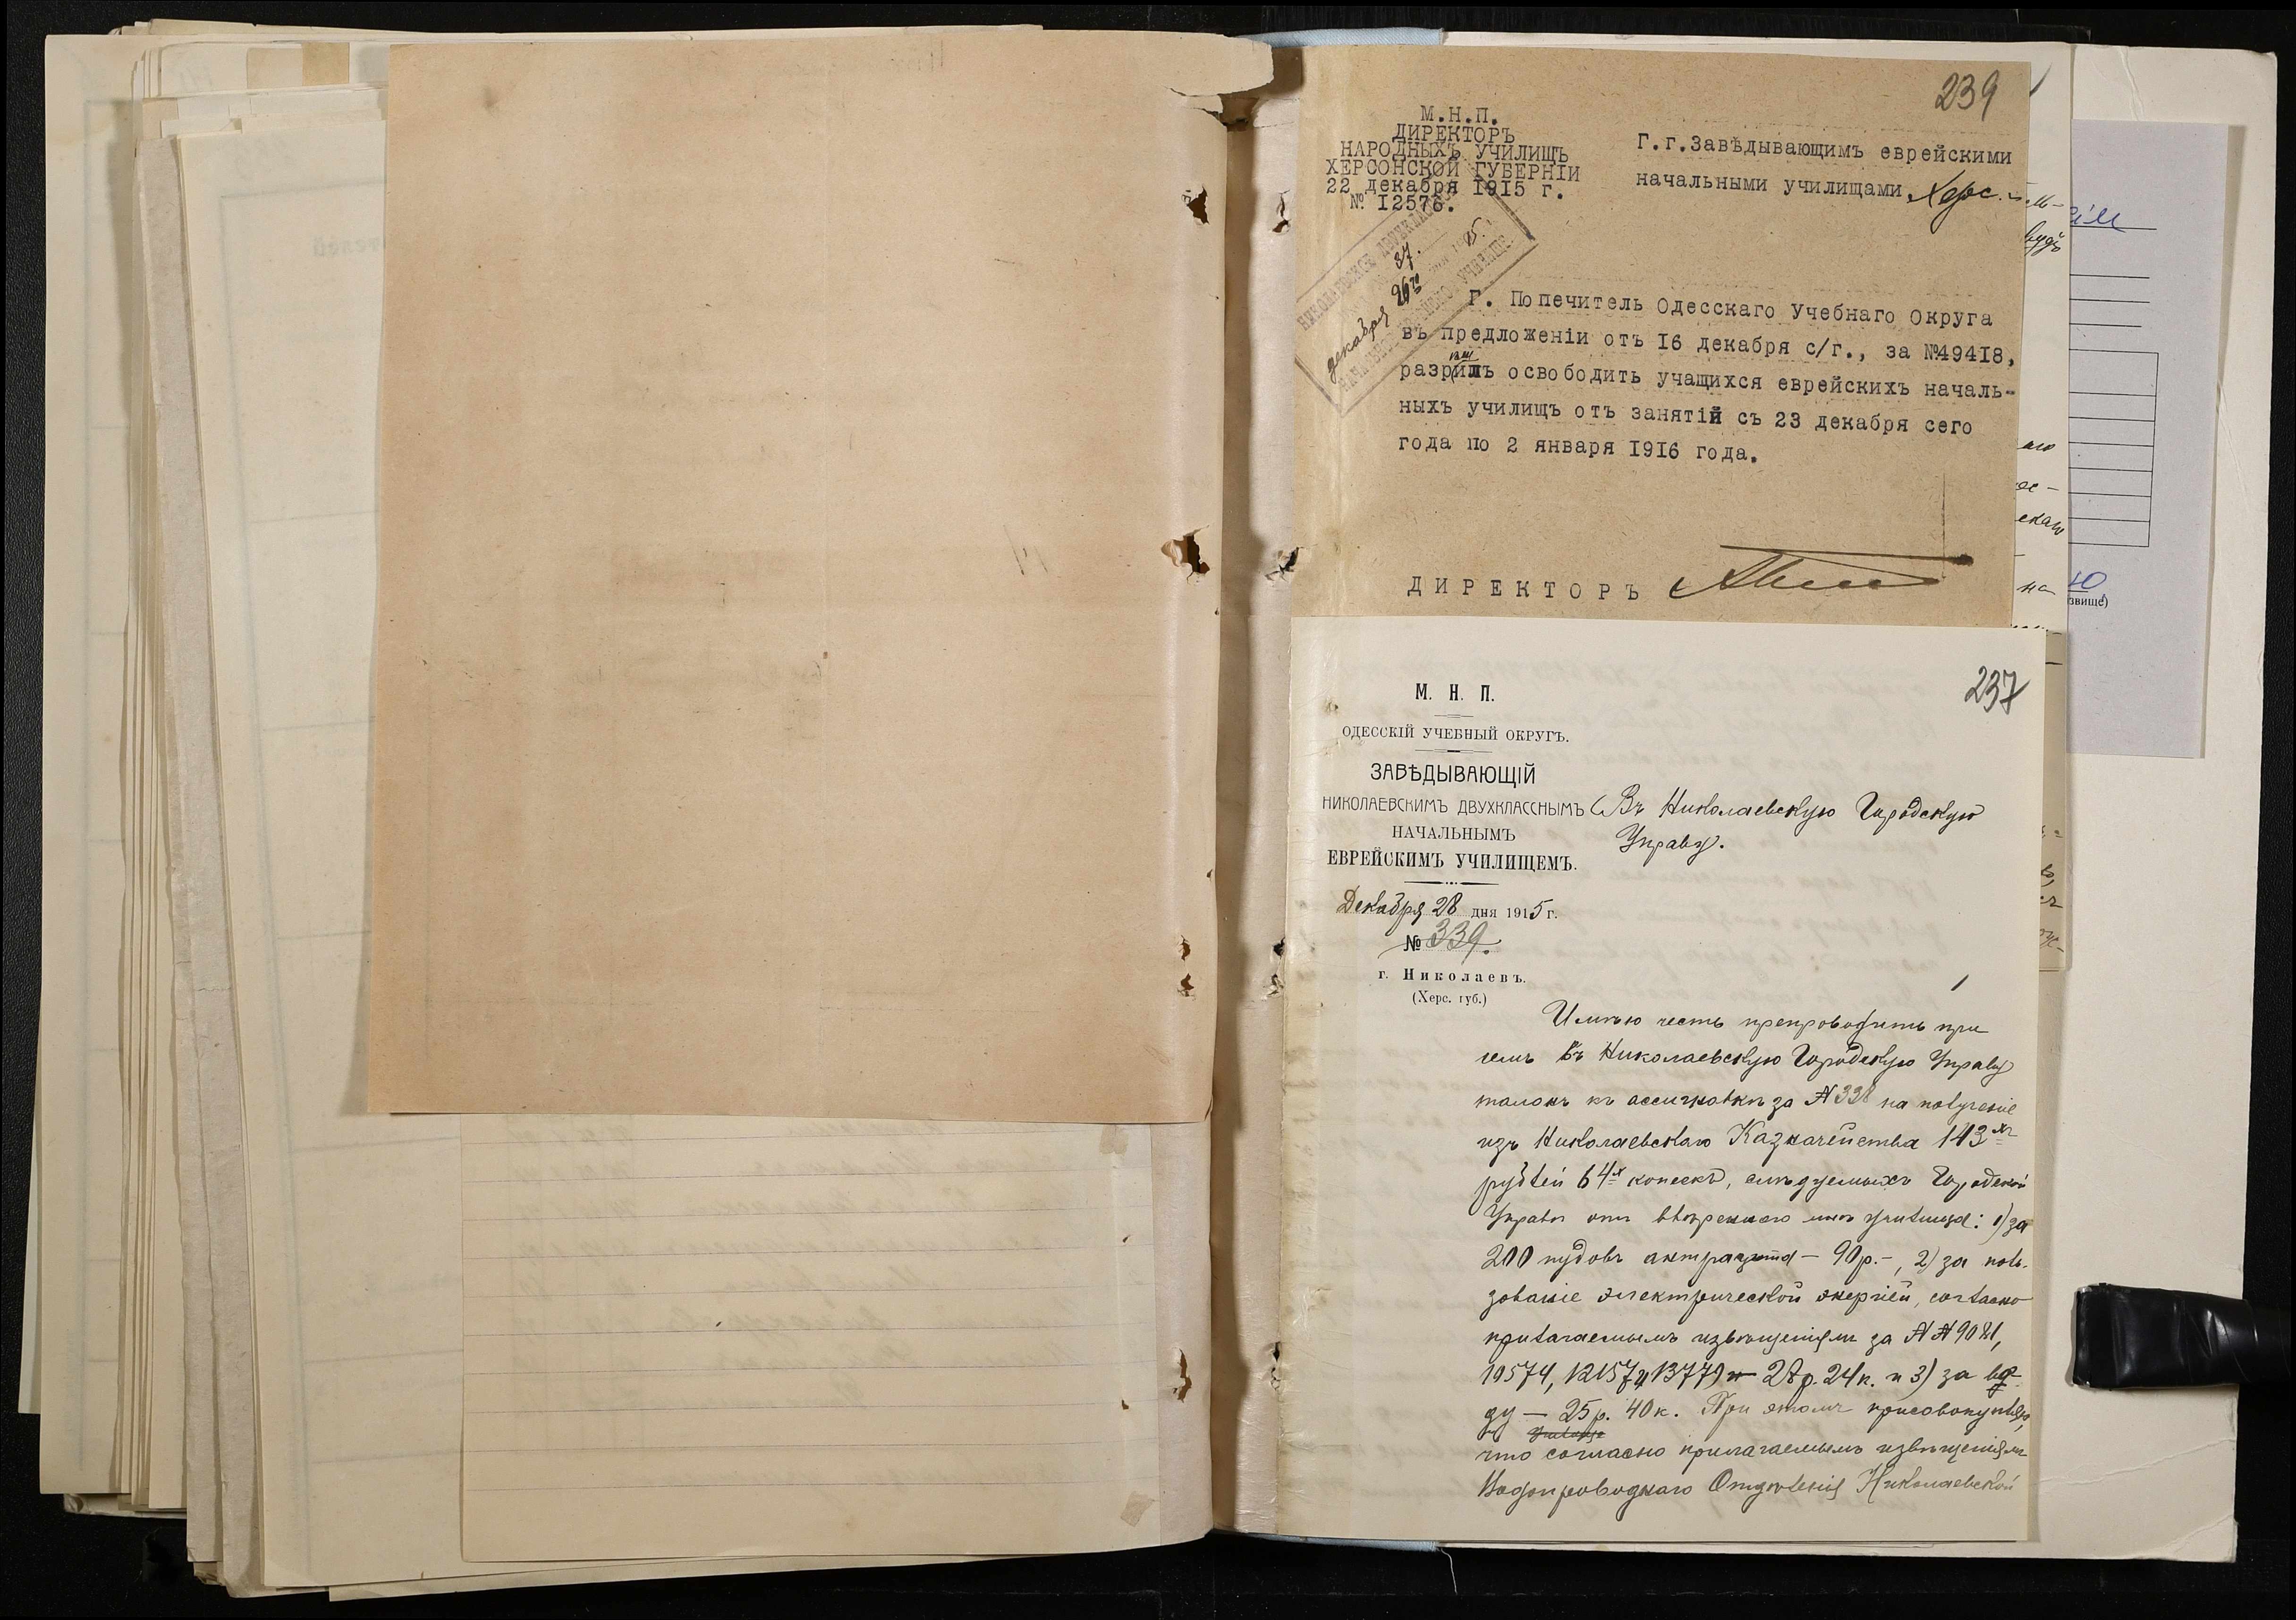 239
М.Н.П.
ДИРЕКТОРЪ
НАРОДНЫХЪ УЧИЛИЩЪ
ХЕРСОНСКОЙ ГУБЕРНІИ
22 декабря 1915 г.
№ I2576.
Г.г.Завѣдывающимъ еврейскими
начальными училищами Херс.
НИКОЛАЕВСКОЕ ДВУХКЛАССНОЕ
37.
декабря 26го дня 1915 г.
НАЧАЛЬНОЕ ЕВРЕЙСКОЕ УЧИЛИЩЕ.
Г. Попечитель Одесскаго Учебнаго Округа
въ предложеніи отъ I6 декабря с/г., за №494I8,
разрѣшилъ освободить учащихся еврейскихъ началь-
ныхъ училищъ отъ занятій съ 23 декабря сего
года по 2 января I9I6 года.
ДИРЕКТОРЪ
237
М. Н. П.
ОДЕССКІЙ УЧЕБНЫЙ ОКРУГЪ.
ЗАВѢДЫВАЮЩІЙ
НИКОЛАЕВСКИМЪ ДВУХКЛАССНЫМЪ
НАЧАЛЬНЫМЪ
ЕВРЕЙСКИМЪ УЧИЛИЩЕМЪ.
Декабря 28 дня 1915 г.
№ 339.
г. Николаевъ.
(Херс. губ.)
Въ Николаевскую Городскую
Управу.
Имѣю честь препроводить при
семъ въ Николаевскую Городскую Управу
талонъ къ ассигновкѣ за № 338 на полученіе
изъ Николаевскаго Казначейства 143хъ
рублей 64х копеекъ, слѣдуемыхъ Городской
Управѣ отъ ввѣреннаго мнѣ училища: 1) за
200 пудовъ антрацита — 90р.-, 2) за поль-
зованіе электрической энергіей, согласно
прилагаемымъ извѣщеніямъ за №№ 9081,
10574, 12157 и 13779 — 28р. 24к. и 3) за во-
ду — 25р. 40к. При этомъ присовокупляю,
что согласно прилагаемымъ извѣщеніямъ
Водопроводнаго Отдѣленія Николаевской